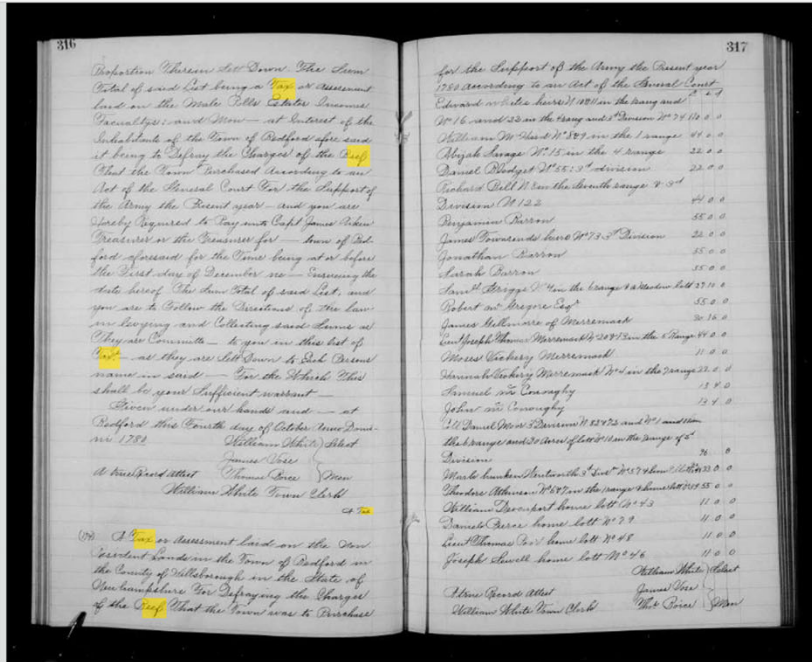 316
Proportion Therein Sett Down The Sum
Total of said List being a Tax or Assessment
laid on the Male Polls Estates Incomes
Facualtys: and Mon— at Interest of the
Inhabitants of the Town of Bedford afore said
it being to Defray the Charges of the Beef
That the Town Purchased According to an
Act of the General Court For the Support of
the Army the Present year — and you are
Hereby Required to Pay unto Capt James Aiken
Treasurer or the Treasurer for — town of Bed
ford aforesaid for the Time being at or before
the First day of December ne— Ensueing the
date hereof The Sum Total of said List, and
you are to Follow the Directions of the law
in Levying and Collecting said Sums as
They are Committe— to you in this list of
Tax— as they are Sett Down to Each Persons
name in said — For the Which This
shall be your Sufficient warrant —
Given under our hands and — at
Bedford this Fourth day of October Anno Dom
ini 1780
William White Select
James Vose
A true Record Attest Thomas Boice Men
William White Town Clerk
A Tax
A Tax or Assessment laid on the Non
Resident Lands in the Town of Bedford in
the County of Hillsborough in the State of
Newhampshire For Defraying the Charges
of the Beef That the Town was to Purchase
317
for the Support of the Army the Present year
1780 According to an Act of the General Court
Edward in the rang and
No 16 and 22 in the rang and 3d Division No 74 110 0 0
William No 889 in the 1 range 44 0 0
Wijah Savage No 15 in the 4 range 22 0 0
Daniel Blodget No 55: 3d division 22 0 0
Richard Bell in the Seventh range & 3rd
Division No 122 44 0 0
Benjamin Barron 55 0 0
James Townsends No 73 3d Division 22 0 0
Jonathan Barron 55 0 0
Barron 55 0 0
Briggs in the 6 range & a Meadow lott 27 10 0
Robert Mc Gregore Esqr 55 0 0
James Gillmore of Merremack 20 16 0
Joseph Thoms Merremack in the 5 Range 44 0 0
Moses Vickery Merremack 11 0 0
Hannah Vickery Merremack No 4 in the 7 range 22 0 0
Samuel Mc Conoughy 13 4 0
John Mc Conoughy 13 4 0
Daniel Moor 3 Division
the 6 range and 20 Acres of lott No 10 in the range of 5
Division 96 0
Wentworth 3d
Theodore Atkinson in the 1 range 55 0 0
William Davenport home lott No 43 11 0 0
Daniel Pierce home lott No 79 11 0 0
Lieut Thomas home lott No 48 11 0 0
Joseph Sewell home lott No 46 11 0 0
William White Select
A true Record Attest James Vose
William White Town Clerk Thos Boice Men